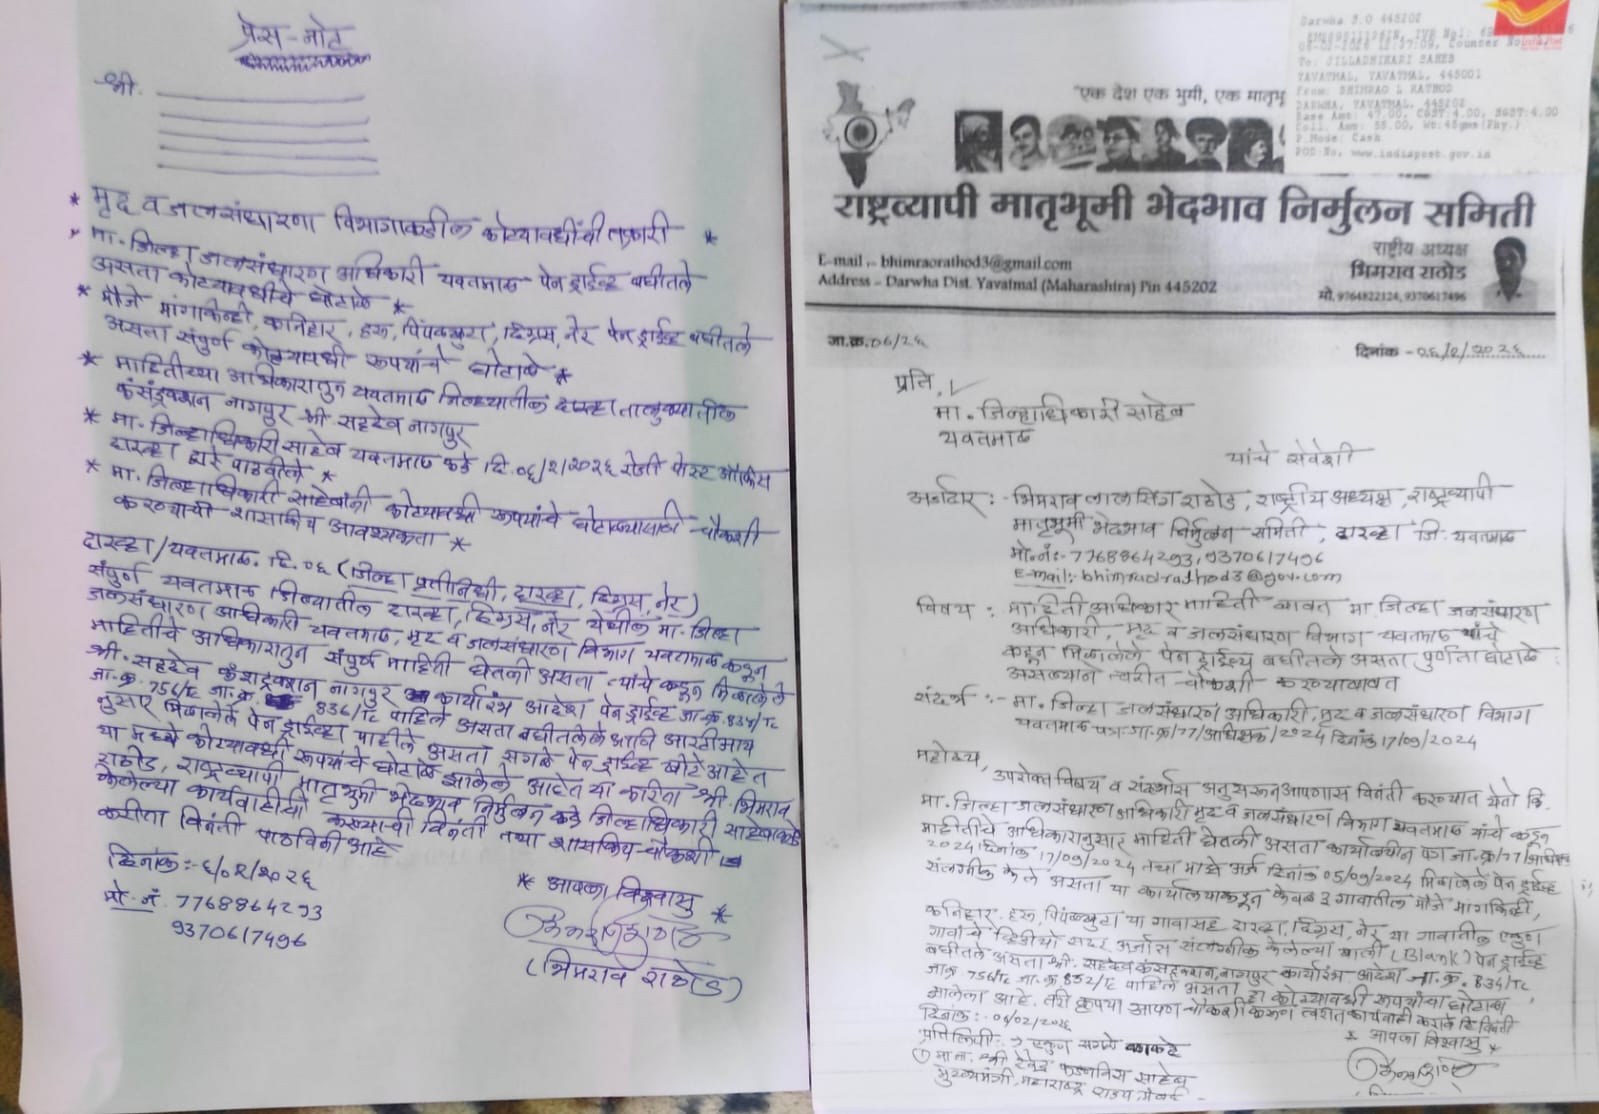 प्रेस-नोट
श्री.
* मृद व जलसंधारण विभागाकडील कोट्यावधींची तक्रारी *
* मा. जिल्हा जलसंधारण अधिकारी यवतमाळ पेन ड्राईव्ह बघीतले
असता कोट्यावधीचे घोटाळे *
* मौजे मांगकिन्ही, कानिहार, हरु, पिंपळखुटा, दिग्रस, नेर पेन ड्राईव्ह बघीतले
असता संपुर्ण कोट्यावधी रूपयांचे घोटाळे *
* माहितीच्या अधिकारातुन यवतमाळ जिल्ह्यातील दारव्हा तालुक्यातील
कंसंट्रक्शन नागपुर श्री सहदेव नागपुर
* मा. जिल्हाधिकारी साहेब यवतमाळ कडे दि.०६/२/२०२६ रोजी पोस्ट ऑफिस
दारव्हा द्वारे पाठवीले *
* मा. जिल्हाधिकारी साहेबांनी कोट्यावधी रूपयांचे घोटाळ्यासाठी चौकशी
करण्याची शासकिय आवश्यकता *
दारव्हा/यवतमाळ. दि.०६ (जिल्हा प्रतीनिधी, दारव्हा, दिग्रस, नेर)
संपुर्ण यवतमाळ जिल्ह्यातील दारव्हा, दिग्रस, नेर येथील मा. जिल्हा
जलसंधारण अधिकारी यवतमाळ, मृद व जलसंधारण विभाग यवतमाळ कडून
माहितीचे अधिकारातुन संपुर्ण माहिती घेतली असता त्यांचे कडून मिळालेले
श्री. सहदेव कंशट्रक्शन नागपुर कार्यारंभ आदेश पेन ड्राईव्ह जा.क्र. 834/TC
जा.क्र. 756/TC जा.क्र. 836/TC पाहिले असता बघीतलेले आणि आरटीआय
नुसार मिळालेले पेन ड्राईव्ह पाहीले असता सगळे पेन ड्राईव्ह खोटे आहेत
या मध्ये कोट्यावधी रूपयांचे घोटाळे झालेले आहेत या करिता श्री. भिमराव
राठोड, राष्ट्रव्यापी मातृभुमी भेदभाव निर्मुलन कडे जिल्हाधिकारी साहेबाकडे
केलेल्या कार्यवाहीची करण्याची विनंती तथा शासकिय चौकशी
करीता विनंती पाठविली आहे
दिनांक:-६/०२/२०२६
मो. नं. 7768864293
9370617496
* आपका विश्वासु *
(भिमराव राठोड)
Darwha S.O 445202
To: JILLADHIKARI SAHEB
YAVATMAL, YAVATMAL, 445001
From: BHIMRAO L RATHOD
DARWHA, YAVATMAL, 445202
Base Amt: 47.00, CGST:4.00, SGST:4.00
Coll. Amt: 55.00, Wt:45gms(Phy.)
P.Mode: Cash
POD:No, www.indiapost.gov.in
"एक देश एक भुमी, एक मातृभू
राष्ट्रव्यापी मातृभूमी भेदभाव निर्मुलन समिती
राष्ट्रीय अध्यक्ष
भिमराव राठोड
मो. 9764822124, 9370617496
E-mail :- bhimraorathod3@gmail.com
Address - Darwha Dist. Yavatmal (Maharashtra) Pin 445202
जा.क्र. 06/26
दिनांक -06/2/2026
प्रति,
मा. जिल्हाधिकारी साहेब
यवतमाळ
यांचे सेवेशी
अर्जदार :- भिमराव लालसिंग राठोड, राष्ट्रीय अध्यक्ष, राष्ट्रव्यापी
मातृभूमी भेदभाव निर्मुलन समिती, दारव्हा जि. यवतमाळ
मो.नं:-7768864293, 9370617496
E-mail:- bhimraolradhod3@gov.com
विषय : माहिती अधिकार माहिती बाबत मा जिल्हा जलसंधारण
अधिकारी, मृद व जलसंधारण विभाग यवतमाळ यांचे
कडून मिळालेले पेन ड्राईव्ह बघीतले असता पुर्णता घोटाळे
असल्याने त्वरीत चौकशी करण्याबाबत
संदर्भ :- मा. जिल्हा जलसंधारण अधिकारी, मृद व जलसंधारण विभाग
यवतमाळ पत्र जा.क्र/77/अधिक्षक/2024 दिनांक 17/09/2024
महोदय,
उपरोक्त विषय व संदर्भास अनुसरून आपणास विनंती करण्यात येतो कि.
मा. जिल्हा जलसंधारण अधिकारी मृद व जलसंधारण विभाग यवतमाळ यांचे कडून
माहीतीचे अधिकारानुसार माहिती घेतली असता कार्यालयीन पत्र जा.क्र/77/अधिक्षक
2024 दिनांक 17/09/2024 तथा माझे अर्ज दिनांक 05/09/2024 मिळालेले पेन ड्राईव्ह
संलग्नीत केले असता या कार्यालयाकडून केवळ 3 गावातील मौजे मांगकिन्ही,
कनिहार, हरु, पिंपळखुटा या गावासह दारव्हा, दिग्रस, नेर या गावातील एकुण
गावांचे व्हिडीयो सदर अर्जास संलग्नीत केलेल्या खाली (Blank) पेन ड्राईव्ह
बघीतले असता श्री. सहदेव कंसट्रक्शन, नागपुर कार्यारंभ आदेश जा.क्र. 834/TC,
जा.क्र 756/TC जा.क्र. 832/TC पाहिले असता हा कोट्यावधी रूपयांचा घोटाळा
झालेला आहे. तरी कृपया आपण चौकशी करून त्वरीत कार्यवाही करावे हि विनंती
दिनांक:- 06/02/2026
* आपका विश्वासु *
प्रतिलिपी:- एकुण सगळे काकडे
① मा.ना. श्री देवेंद्र फडणविस साहेब
मुख्यमंत्री, महाराष्ट्र राज्य मुंबई -